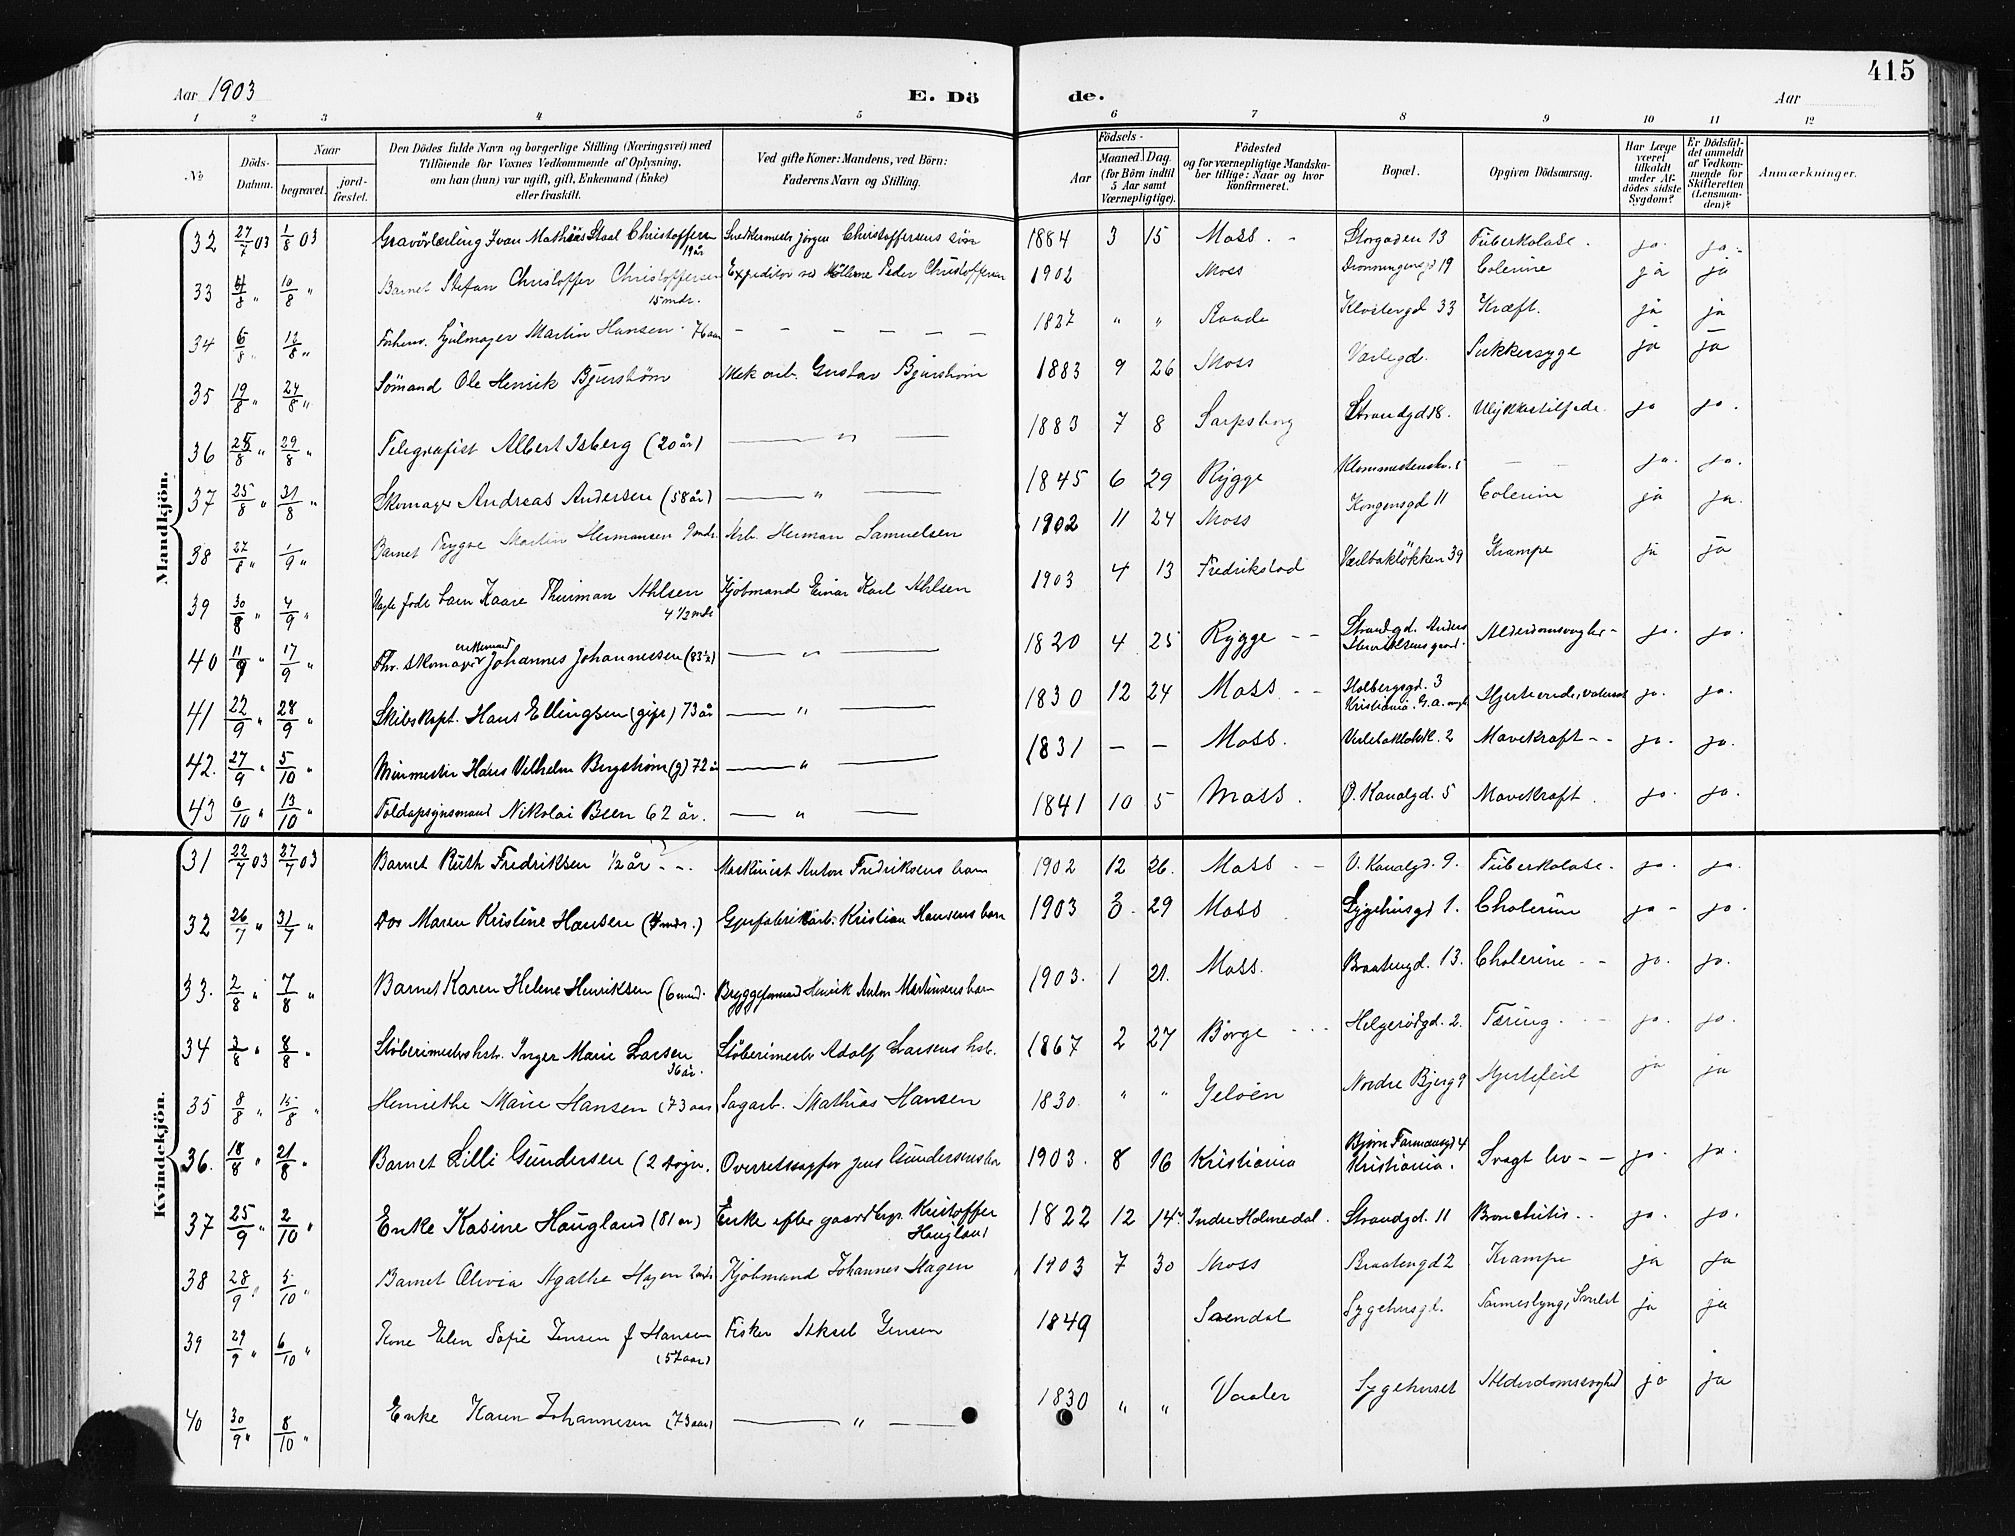 415
Aar 1903
E. Dö
de.
Aar
1 2 3 4 5 6 7 8 9 10 11 12
No
Döds-
Datum.
Naar
begravet.
jord-
fæstet.
Den Dödes fulde Navn og borgerlige Stilling (Næringsvei) med
Tilföiende for Voxnes Vedkommende af Oplysning,
om han (hun) var ugift, gift, Enkemand (Enke)
eller fraskilt.
Ved gifte Koner: Mandens, ved Börn:
Faderens Navn og Stilling.
Födsels-
Aar
Maaned
Dag.
(for Börn indtil
5 Aar samt
Værnepligtige).
Födested
og for værnepligtige Mandska-
ber tillige: Naar og hvor
konfirmeret.
Bopæl.
Opgiven Dödsaarsag.
Har Læge
været
tilkaldt
under Af-
dödes sidste
Sygdom?
Er Dödsfal-
det anmeldt
af Vedkom-
mende for
Skifteretten
(Lensman-
den)?
Anmærkninger.
Mandkjön.
32 27/7 03 1/8 03 Gravörlærling Ivan Mathias Staal Christoffersen 19 år Snedkermester Jörgen Christoffersens sön 1884 3 15 Moss. - Storgaden 13 Tuberkolose. ja. ja.
33 4/8 " 10/8 " Barnet Stefan Christoffer Christoffersen 15 mdr. Expeditör ved Möllerne Peder Christoffersen 1902 Moss Dronningensgd 19 Colerine ja ja
34 6/8 " 10/8 " Forhenv. Hjulmager Martin Hansen 76 aar — — — — — — 1827 " " Raade Klostergd 33 Kræft. ja ja
35 19/8 " 24/8 " Sömand Ole Henrik Bjurström Mek arb. Gustav Bjurström 1883 9 26 Moss Varlegd. Sukkersyge ja ja
36 25/8 " 29/8 " Telegrafist Albert Isberg (20 år) — " — 1883 7 8 Sarpsborg Strandgd 18. Ulykkestilfælde. ja ja.
37 25/8 " 31/8 " Skomager Andreas Andersen (58 år) — " — 1845 6 29 Rygge — — ja. ja.
38 27/8 " 1/9 " Barnet Trygve Martin Hermansen 9 mdr. Arb. Herman Samuelsen 1902 11 24 Moss Kongensgd 11 Colerine ja ja.
39 30/8 " 4/9 " födt barn Kaare Thurman Ahlsen 4 1/2 mdr Kjöbmand Einar Karl Ahlsen 1903 4 13 Fredrikstad Værlbaklökken 39 Krampe ja ja
40 11/9 " 17/9 " Fhv. skomager enkemand Johannes Johannessen (83 1/2) — " — 1820 4 25 Rygge - - Strandgd. Anders Henriksens gaard. Alderdomssvaghed - ja. ja.
41 22/9 " 28/9 " Skibskapt. Hans Ellingsen (gift) 73 år — " — 1830 12 24 Moss - - Holbergsgd. 3 Kristiania. ja. ja.
42. 27/9 " 5/10 " Murmester Hans Vilhelm Bergström (g) 72 år — " — 1831 — — Moss. 2 Mavekræft - - ja. ja.
43 6/10 " 13/10 " Toldopsynsmand Nikolai Been 62 år. — " — 1841 10 5 Moss. Ø. Kanalgd. 5 Mavekræft. ja. ja.
Kvindekjön.
31 22/7 03 27/7 03 Barnet Ruth Fredriksen 1/2 år - - Maskinist Anton Fredriksens barn 1902 12 26. Moss - - V. Kanalgd. 9. Tuberkolose. ja. ja.
32 26/7 " 31/7 " Maren Kristine Hansen (4 mdr.) Kristian Hansens barn 1903 3. 29 Moss Sygehusgd 1. Cholerine ja - ja.
33. 2/8 " 7/8 " Barnet Karen Helene Henriksen (6 mnd. Bryggeformand Henrik Anton Martinsens barn 1903. 1 21. Moss. Braatengd. 13. Cholerine - - ja. ja.
34 3/8 " 8/8 " Stöberimesters hst. Inger Marie Larsen 36 år. Stöberimester Adolf Larsens hst. 1867 2 27 Borge - - - Helgerödgd. 2. Tæring. - ja. ja.
35 8/8 " 15/8 " Henriethe Marie Hansen (73 aar) Sagarb. Mathias Hansen 1830. " " Jelöen Nordre Bjerg 9 Hjertefeil ja ja
36. 18/8 " 21/8 " Barnet Lilli Gundersen (2 dögn. Overretssagför Jens Gundersens barn 1903. 8 16 Kristiania Björn Farmansgd 4 Kristiania. Svagt liv - - ja. ja.
37 25/9 " 2/10 " Enke Kasine Haugland (81 år) Enke efter gaardbgr. Kristoffer Haugland 1822 12 14 Indre Holmedal. Strandgd. 11 Bronchitis - - ja. ja.
38 28/9 " 5/10 " Barnet Olivia Agathe Hagen 2 mdr Kjöbmand Johannes Hagen 1903 7 30 Moss Braatengd 2 Krampe ja ja
39 29/9 " 6/10 " Elen Sofie Jensen f Hansen (57 aar) Fisker Aksel Jensen 1849 Sygehusgd. ja ja
40 30/9 " 8/10 " Enke Karen Johannesen (73 aar) — " — 1830 " " Vaaler Sygehuset Alderdomssvaghed ja ja